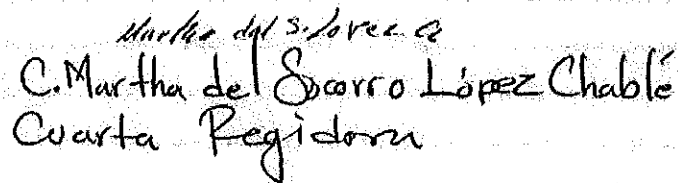 Martha del S. López C
C. Martha del Socorro López Chablé
Cuarta Regidora